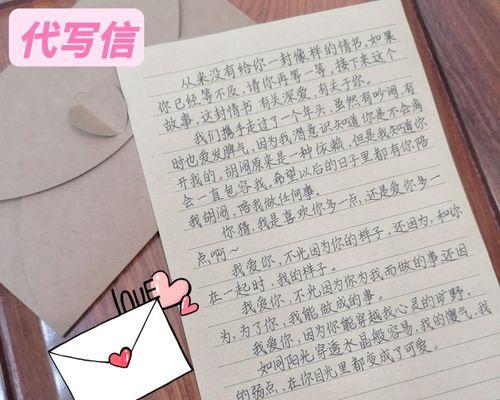 代写信
从来没有给你一封像样的情书,如果
你已经等不及,请你再等一等,接下来这个
故事,这封情书 有关深爱,有关于你。
我们携手走过了一个年头,虽然有吵闹 有
时也爱发脾气,因为我潜意识知道你是不会离
开我的。胡闹原来是一种依赖,但是我知道你
会一直包容我。希望以后的日子里都有你陪
我胡闹,陪我做任何事。
你猜,我是喜欢你多一点,还是爱你多一
点啊~
我爱你,不光因为你的样子,还因为,和你
在一起时,我的样子。
我爱你,不光因为你为我而做的事,还因
为,为了你,我能做成的事。
我爱你,因为你能穿越我心灵的旷野,
如同阳光穿透水晶般容易,我的傻气,我
的弱点,在你目光里都变成了可爱。
LOVE